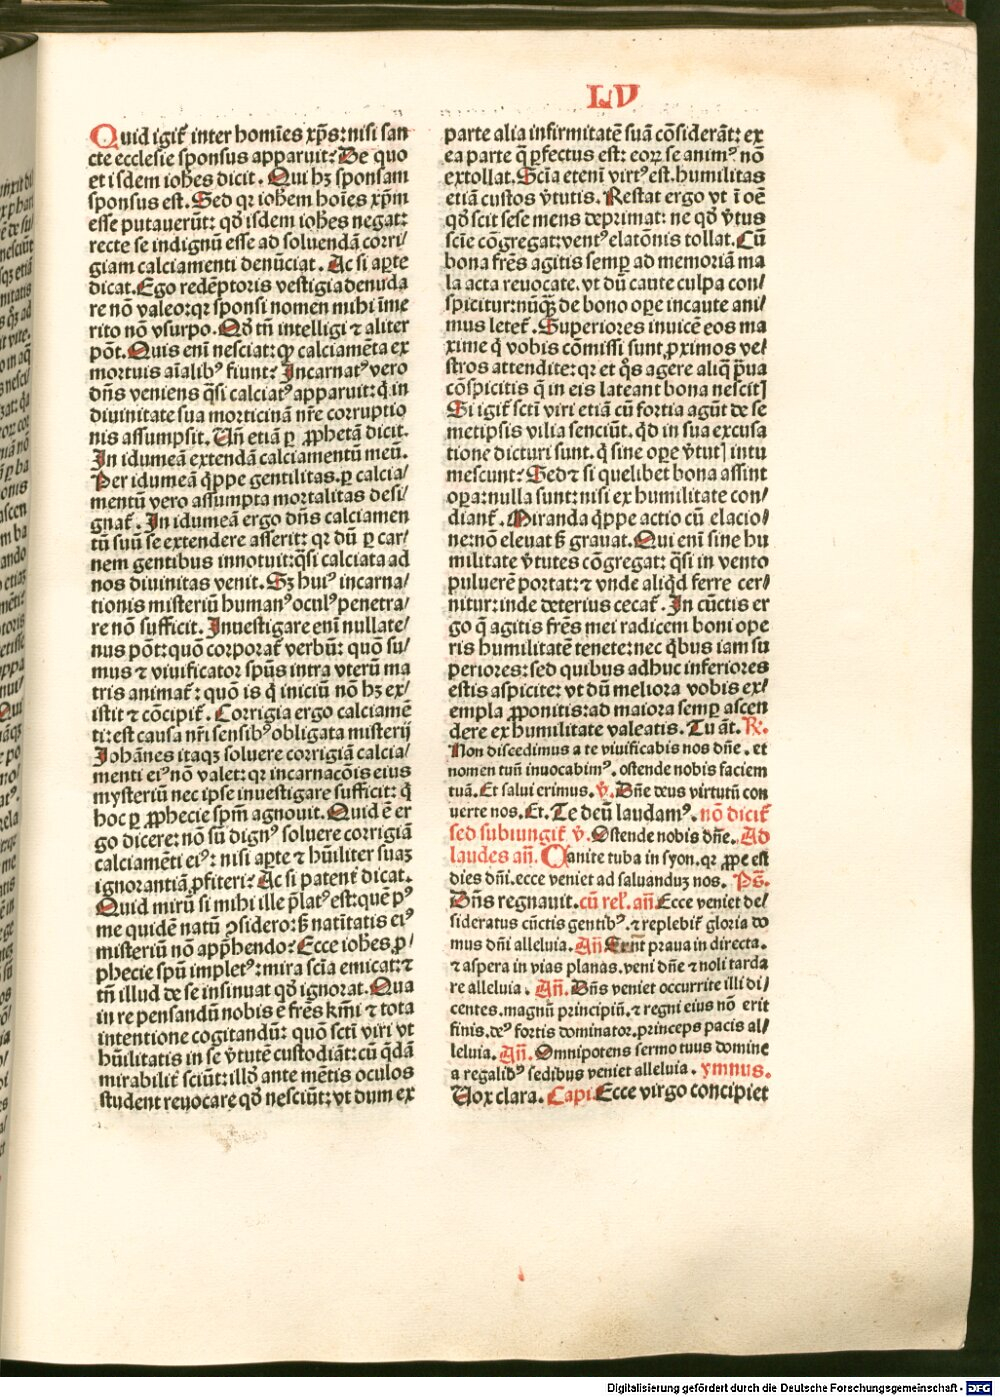 LV
Quid igit̃ inter homĩes xp̃s: nisi san
cte ecclesie sponsus apparuit? De quo
et isdem ioh̃es dicit. Qui hꝫ sponsam
sponsus est. Sed qr ioh̃em hoĩes xp̃m
esse putauerũt: qđ isdem ioh̃es negat:
recte se indignũ esse ad soluendã corri/
giam calciamenti denũciat. Ac si aꝑte
dicat. Ego redẽptoris vestigia denuda
re nõ valeo: qr sponsi nomen mihi ĩme
rito nõ vsurpo. Qđ tñ intelligi ⁊ aliter
põt. Quis eni nesciat: ꝙ calciamẽta ex
mortuis aĩalibꝰ fiunt? Incarnatꝰ vero
dñs veniens q̃si calciatꝰ apparuit: q̇ in
diuinitate sua morticinã nr̃e corruptio
nis assumpsit. Uñ etiã ꝑ ꝓphetã dicit.
In idumeã extendã calciamentũ meũ.
Per idumeã q̇ppe gentilitas. ꝑ calcia/
mentũ vero assumpta mortalitas desi/
gnat̃. In idumeã ergo dñs calciamen
tũ suũ se extendere asserit: qr dũ ꝑ car/
nem gentibus innotuit: q̃si calciata ad
nos diuinitas venit. Sꝫ huiꝰ incarna/
tionis misteriũ humanꝰ oculꝰ penetra/
re nõ sufficit. Inuestigare eni nullate/
nus põt: quõ corporat̃ verbũ: quõ su/
mus ⁊ viuificator spũs intra vterũ ma
tris animat̃: quõ is q̇ iniciũ nõ hꝫ ex/
istit ⁊ cõcipit̃. Corrigia ergo calciamẽ
ti: est causa nr̃i sensibꝰ obligata misterij
Johãnes itaqꝫ soluere corrigiã calcia/
menti eiꝰ nõ valet: qr incarnacõis eius
mysteriũ nec ipse inuestigare sufficit: q̇
hoc ꝑ ꝓphecie spm̃ agnouit. Quid ẽ er
go dicere: nõ sũ dignꝰ soluere corrigiã
calciamẽti eiꝰ: nisi aꝑte ⁊ hũiliter suaꝫ
ignorantiã ꝓfiteri? Ac si patent̃ dicat.
Quid mirũ si mihi ille p̃latꝰ est: quẽ pꝰ
me quidẽ natũ ꝯsidero: sꝫ natĩtatis eiꝰ
misteriũ nõ app̃hendo? Ecce ioh̃es ꝓ/
phecie spũ impletꝰ: mira scĩa emicat: ⁊
tñ illud de se insinuat qđ ignorat. Qua
in re pensandũ nobis ẽ fr̃es km̃i ⁊ tota
intentione cogitandũ: quõ scti viri vt
hũilitatis in se v̾tutẽ custodiãt: cũ q̃dã
mirabilit̃ sciũt: illđ ante mẽtis oculos
student reuocare qđ nesciũt: vt dum ex
parte alia infirmitatẽ suã cõsiderãt: ex
ea parte q̃ ꝑfectus est: eoꝝ se animꝰ nõ
extollat. Scĩa eteni virtꝰ est. humilitas
etiã custos v̾tutis. Restat ergo vt ĩ oẽ
qđ scit sese mens deprimat: ne qđ v̾tus
scĩe cõgregat: ventꝰ elatõnis tollat. Cũ
bona fr̃es agitis semꝑ ad memoriã ma
la acta reuocate. vt dũ caute culpa con/
spicitur: nũq̃ꝫ de bono oꝑe incaute ani/
mus letet̃. Superiores inuicẽ eos ma
xime q̇ vobis cõmissi sunt. ꝓximos ve/
stros attendite: qr et q̇s agere aliq̃ p̃ua
cõspicitis q̃ in eis lateant bona nescit]
Si igit̃ scti viri etiã cũ fortia agũt de se
metipsis vilia senciũt. qđ in sua excusa
tione dicturi sunt. q̇ sine oꝑe v̾tut] intu
mescunt? Sed ⁊ si quelibet bona assint
oꝑa: nulla sunt: nisi ex humilitate con/
diant̃. Miranda q̇ppe actio cũ elacio/
ne: nõ eleuat sꝫ grauat. Qui eni sine hu
militate v̾tutes cõgregat: q̃si in vento
puluerẽ portat: ⁊ vnde aliqđ ferre cer/
nitur: inde deterius cecat̃. In cũctis er
go q̃ agitis fr̃es mei radicem boni oꝑe
ris humilitatẽ tenete: nec q̇bus iam su
periores: sed quibus adhuc inferiores
estis aspicite: vt dũ meliora vobis ex/
empla ꝓponitis: ad maiora semꝑ ascen
dere ex humilitate valeatis. Tu ãt. ℟.
Non discedimus a te viuificabis nos dñe. et
nomen tuũ inuocabimꝰ. ostende nobis faciem
tuã. Et salui erimus. ℣. Dñe deus virtutũ con
uerte nos. Et. Te deũ laudamꝰ. nõ dicit̃
sed subiungit̃ ℣. Ostende nobis dñe. Ad
laudes añ. Canite tuba in syon. qr ꝓpe est
dies dñi. ecce veniet ad saluanduꝫ nos. Ps̃.
Dñs regnauit. cũ rel'. añ. Ecce veniet de/
sideratus cũctis gentibꝰ. ⁊ replebit̃ gloria do
mus dñi alleluia. Añ Erũt praua in directa.
⁊ aspera in vias planas. veni dñe ⁊ noli tarda
re alleluia. Añ. Dñs veniet occurrite illi di/
centes. magnũ principiũ. ⁊ regni eius nõ erit
finis. deꝰ fortis dominator. princeps pacis al/
leluia. Añ. Omnipotens sermo tuus domine
a regalibꝰ sedibus veniet alleluia. ymnus.
Uox clara. Capi. Ecce virgo concipiet
Digitalisierung gefördert durch die Deutsche Forschungsgemeinschaft - DFG